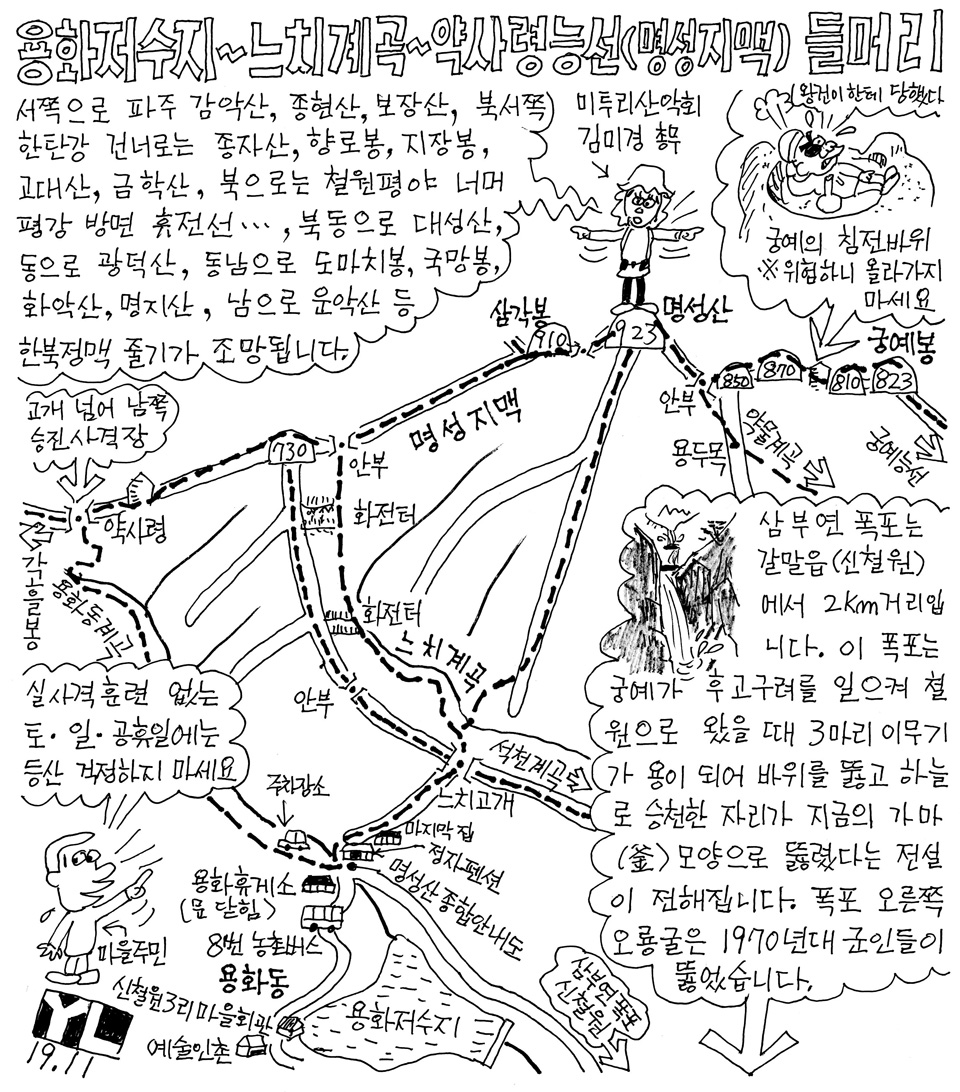 용화저수지~느치계곡~약사령능선(명성지맥) 들머리
서쪽으로 파주 감악산, 종현산, 보장산, 북서쪽
한탄강 건너로는 종자산, 향로봉, 지장봉,
고대산, 금학산, 북으로는 철원평야 너머
평강 방면 휴전선…, 북동으로 대성산,
동으로 광덕산, 동남으로 도마치봉, 국망봉,
화악산, 명지산, 남으로 운악산 등
한북정맥 줄기가 조망됩니다.
미투리산악회
김미경 총무
왕건이한테 당했다
궁예의 침전바위
※위험하니 올라가지
마세요
삼각봉
910
923
명성산
궁예봉
850
870
810
823
안부
용두목
약물계곡
궁예능선
명성지맥
고개 넘어 남쪽
승진사격장
730
안부
약사령
화전터
각흘봉
용화동계곡
화전터
느치계곡
안부
삼부연 폭포는
갈말읍(신철원)
에서 2km거리입
니다. 이 폭포는
궁예가 후고구려를 일으켜 철
원으로 왔을 때 3마리 이무기
가 용이 되어 바위를 뚫고 하늘
로 승천한 자리가 지금의 가마
(釜)모양으로 뚫렸다는 전설
이 전해집니다. 폭포 오른쪽
오룡굴은 1970년대 군인들이
뚫었습니다.
실사격훈련 없는
토·일·공휴일에는
등산 걱정하지 마세요
석천계곡
느치고개
주차장소
마지막 집
정자펜션
명성산 종합안내도
용화휴게소
(문 닫힘)
8번 농촌버스
용화동
마을주민
신철원3리마을회관
예술인촌
용화저수지
삼부연폭포
신철원
YL
19.11